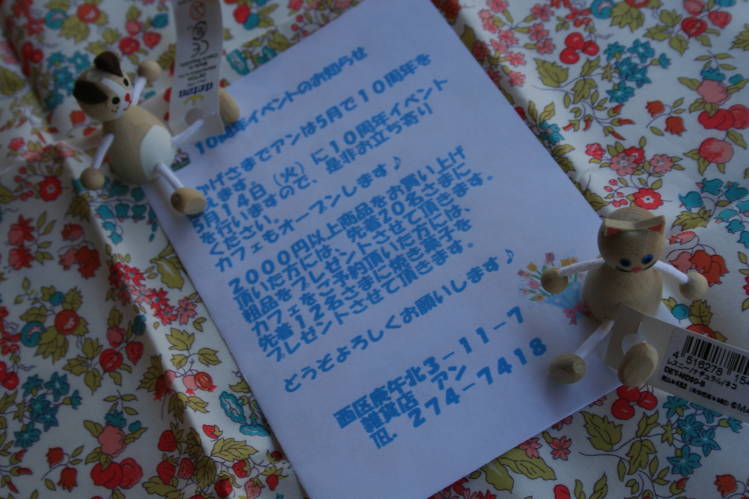 10周年イベントのお知らせ
かげさまでアンは5月で10周年を
えます。
5月14日(火)に10周年イベント
を行いますので、是非お立ち寄り
ください。
カフェもオープンします♪
2000円以上商品をお買い上げ
頂いた方には、先着20名さまに
粗品をプレゼントさせて頂きます。
カフェをご予約頂いた方には、
先着12名さまに焼き菓子を
プレゼントさせて頂きます。
どうぞよろしくお願いします♪
西区庚午北3-11-7
雑貨店 アン
TEL 274-7418
detoa
4 516278